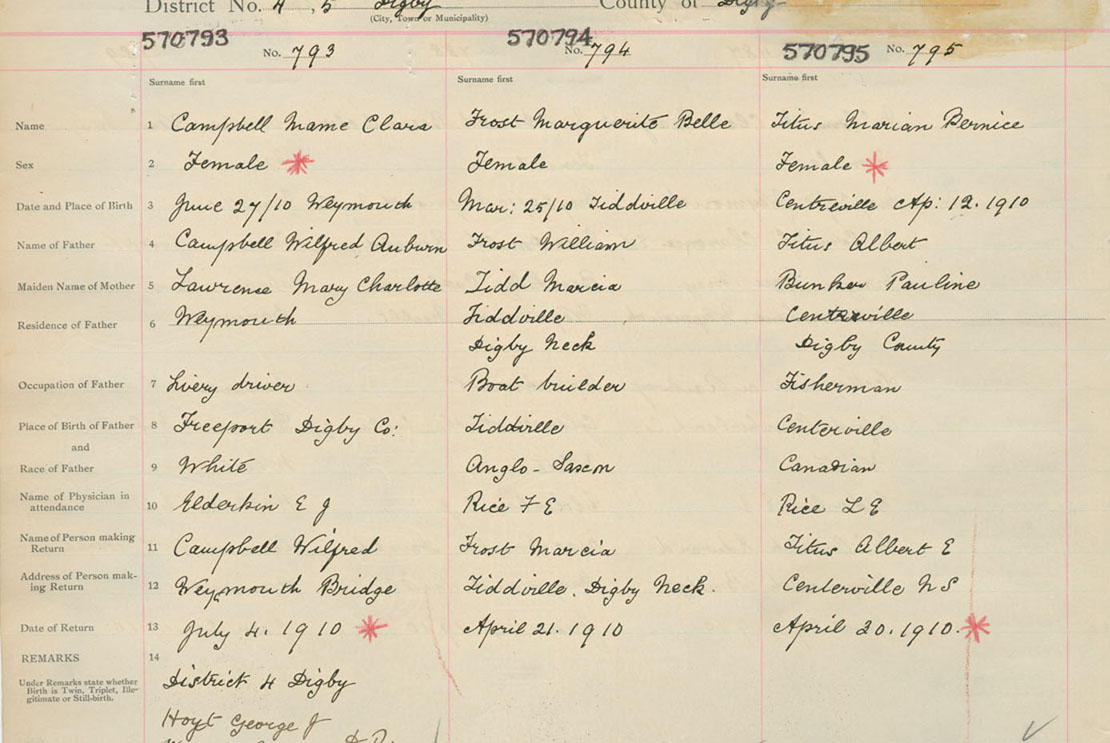 District No. 4, 5 Digby County of Digby
(City, Town or Municipality)
570793 570794 570795
No. 793 No. 794 No. 795
Surname first Surname first Surname first
Name 1 Campbell Mame Clara Frost Marguerite Belle Titus Marian Bernice
Sex 2 Female Female Female
Date and Place of Birth 3 June 27/10 Weymouth Mar: 25/10 Tiddville Centreville Ap: 12. 1910
Name of Father 4 Campbell Wilfred Auburn Frost William Titus Albert
Maiden Name of Mother 5 Lawrence Mary Charlotte Tidd Marcia Bunker Pauline
Residence of Father 6 Weymouth Tiddville Centreville
Digby Neck Digby County
Occupation of Father 7 Livery driver Boat builder Fisherman
Place of Birth of Father 8 Freeport Digby Co: Tiddville Centerville
and
Race of Father 9 White Anglo-Saxon Canadian
Name of Physician in attendance 10 Elderkin E J Rice F E Rice L E
Name of Person making Return 11 Campbell Wilfred Frost Marcia Titus Albert E
Address of Person mak-ing Return 12 Weymouth Bridge Tiddville. Digby Neck. Centerville N S
Date of Return 13 July 4. 1910 April 21. 1910 April 30. 1910.
REMARKS 14
Under Remarks state whether Birth is Twin, Triplet, Ille-gitimate or Still-birth. District 4 Digby
Hoyt George J